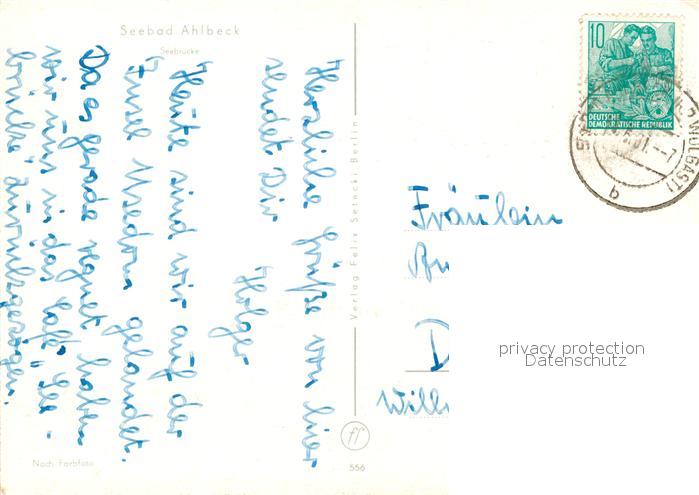 Seebad Ahlbeck
Seebrücke
Heute sind wir auf der
Insel Usedom gelandet.
Da es grade regnet haben
wir uns in das Café "See-
brücke" zurückgezogen.
Herzliche Grüße von hier
sendet Dir
Holger
Nach Farbfoto
Verlag Felix Setecki Berlin
ff
556
10
DEUTSCHE
DEMOKRATISCHE REPUBLIK
WOLGAST
b
Fräulein
D
Will
privacy protection
Datenschutz